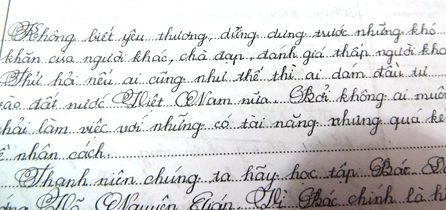 Không biết yêu thương, dửng dưng trước những khó
khăn của người khác, chà đạp, đánh giá thấp người kho
Thử hỏi nếu ai cũng như thế thì ai dám đầu tư
vào đất nước Việt Nam nữa. Bởi không ai muốn
phải làm việc với những có tài năng nhưng quá ké
về nhân cách.
Thanh niên chúng ta hãy học tập Bác
Võ Nguyên Giáp. Bác chính là